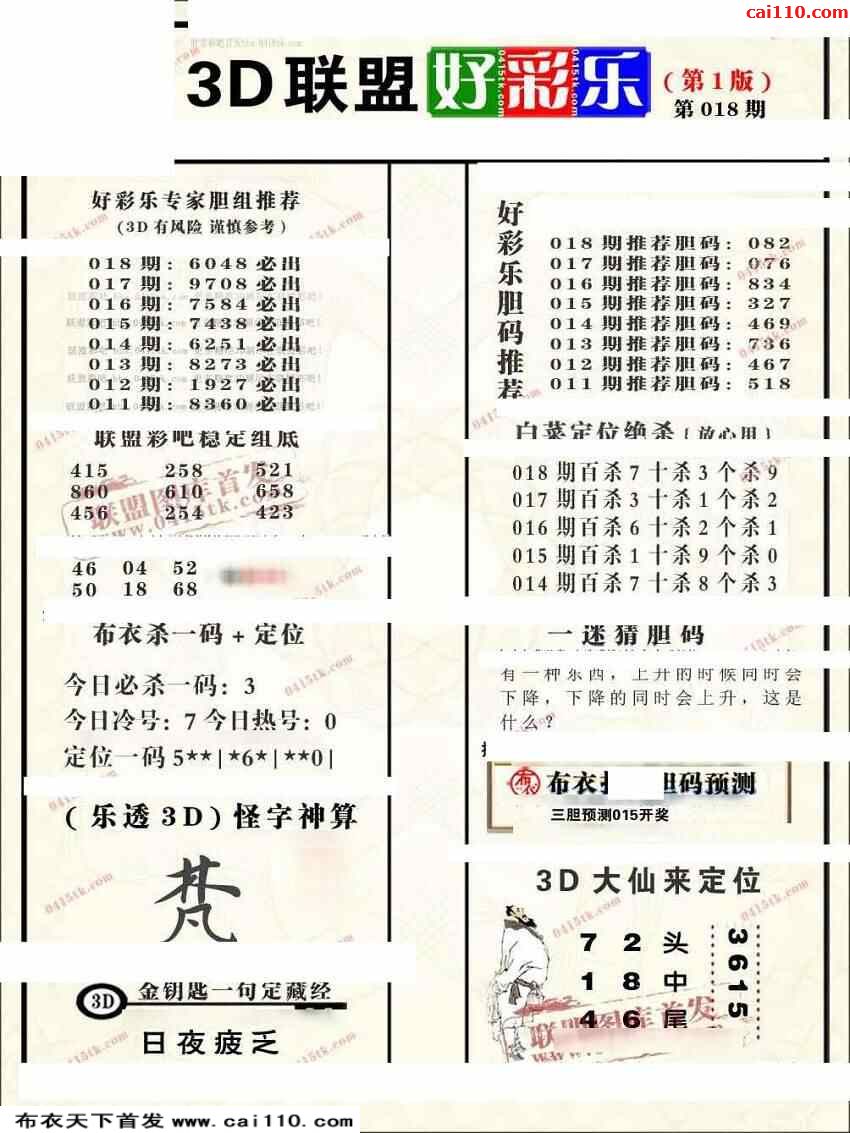 cai110.com
3D联盟好彩乐
0415tk.com 0415tk.com 0415tk.com
(第1版)
第018期
好彩乐专家胆组推荐
(3D有风险 谨慎参考)
018期: 6048必出
017期: 9708必出
016期: 7584必出
015期: 7438必出
014期: 6251必出
013期: 8273必出
012期: 1927必出
011期: 8360必出
联盟彩吧稳定组底
415 258 521
860 610 658
456 254 423
联盟图库首发
www.0415tk.com
46 04 52
50 18 68
布衣杀一码+定位
今日必杀一码: 3
今日冷号: 7 今日热号: 0
定位一码 5**|*6*|**0|
(乐透3D)怪字神算
梵
3D 金钥匙一句定藏经
日夜疲乏
好彩乐胆码推荐
018期推荐胆码: 082
017期推荐胆码: 076
016期推荐胆码: 834
015期推荐胆码: 327
014期推荐胆码: 469
013期推荐胆码: 736
012期推荐胆码: 467
011期推荐胆码: 518
白菜定位绝杀(放心用)
018期百杀7十杀3个杀9
017期百杀3十杀1个杀2
016期百杀6十杀2个杀1
015期百杀1十杀9个杀0
014期百杀7十杀8个杀3
一迷猜胆码
有一种东西，上升的时候同时会
下降，下降的同时会上升，这是
什么?
布衣 胆码预测
三胆预测015开奖
3D大仙来定位
7 2 头
1 8 中
4 6 尾
3615
联盟图库首发
0415tk.com
布衣天下首发 www.cai110.com